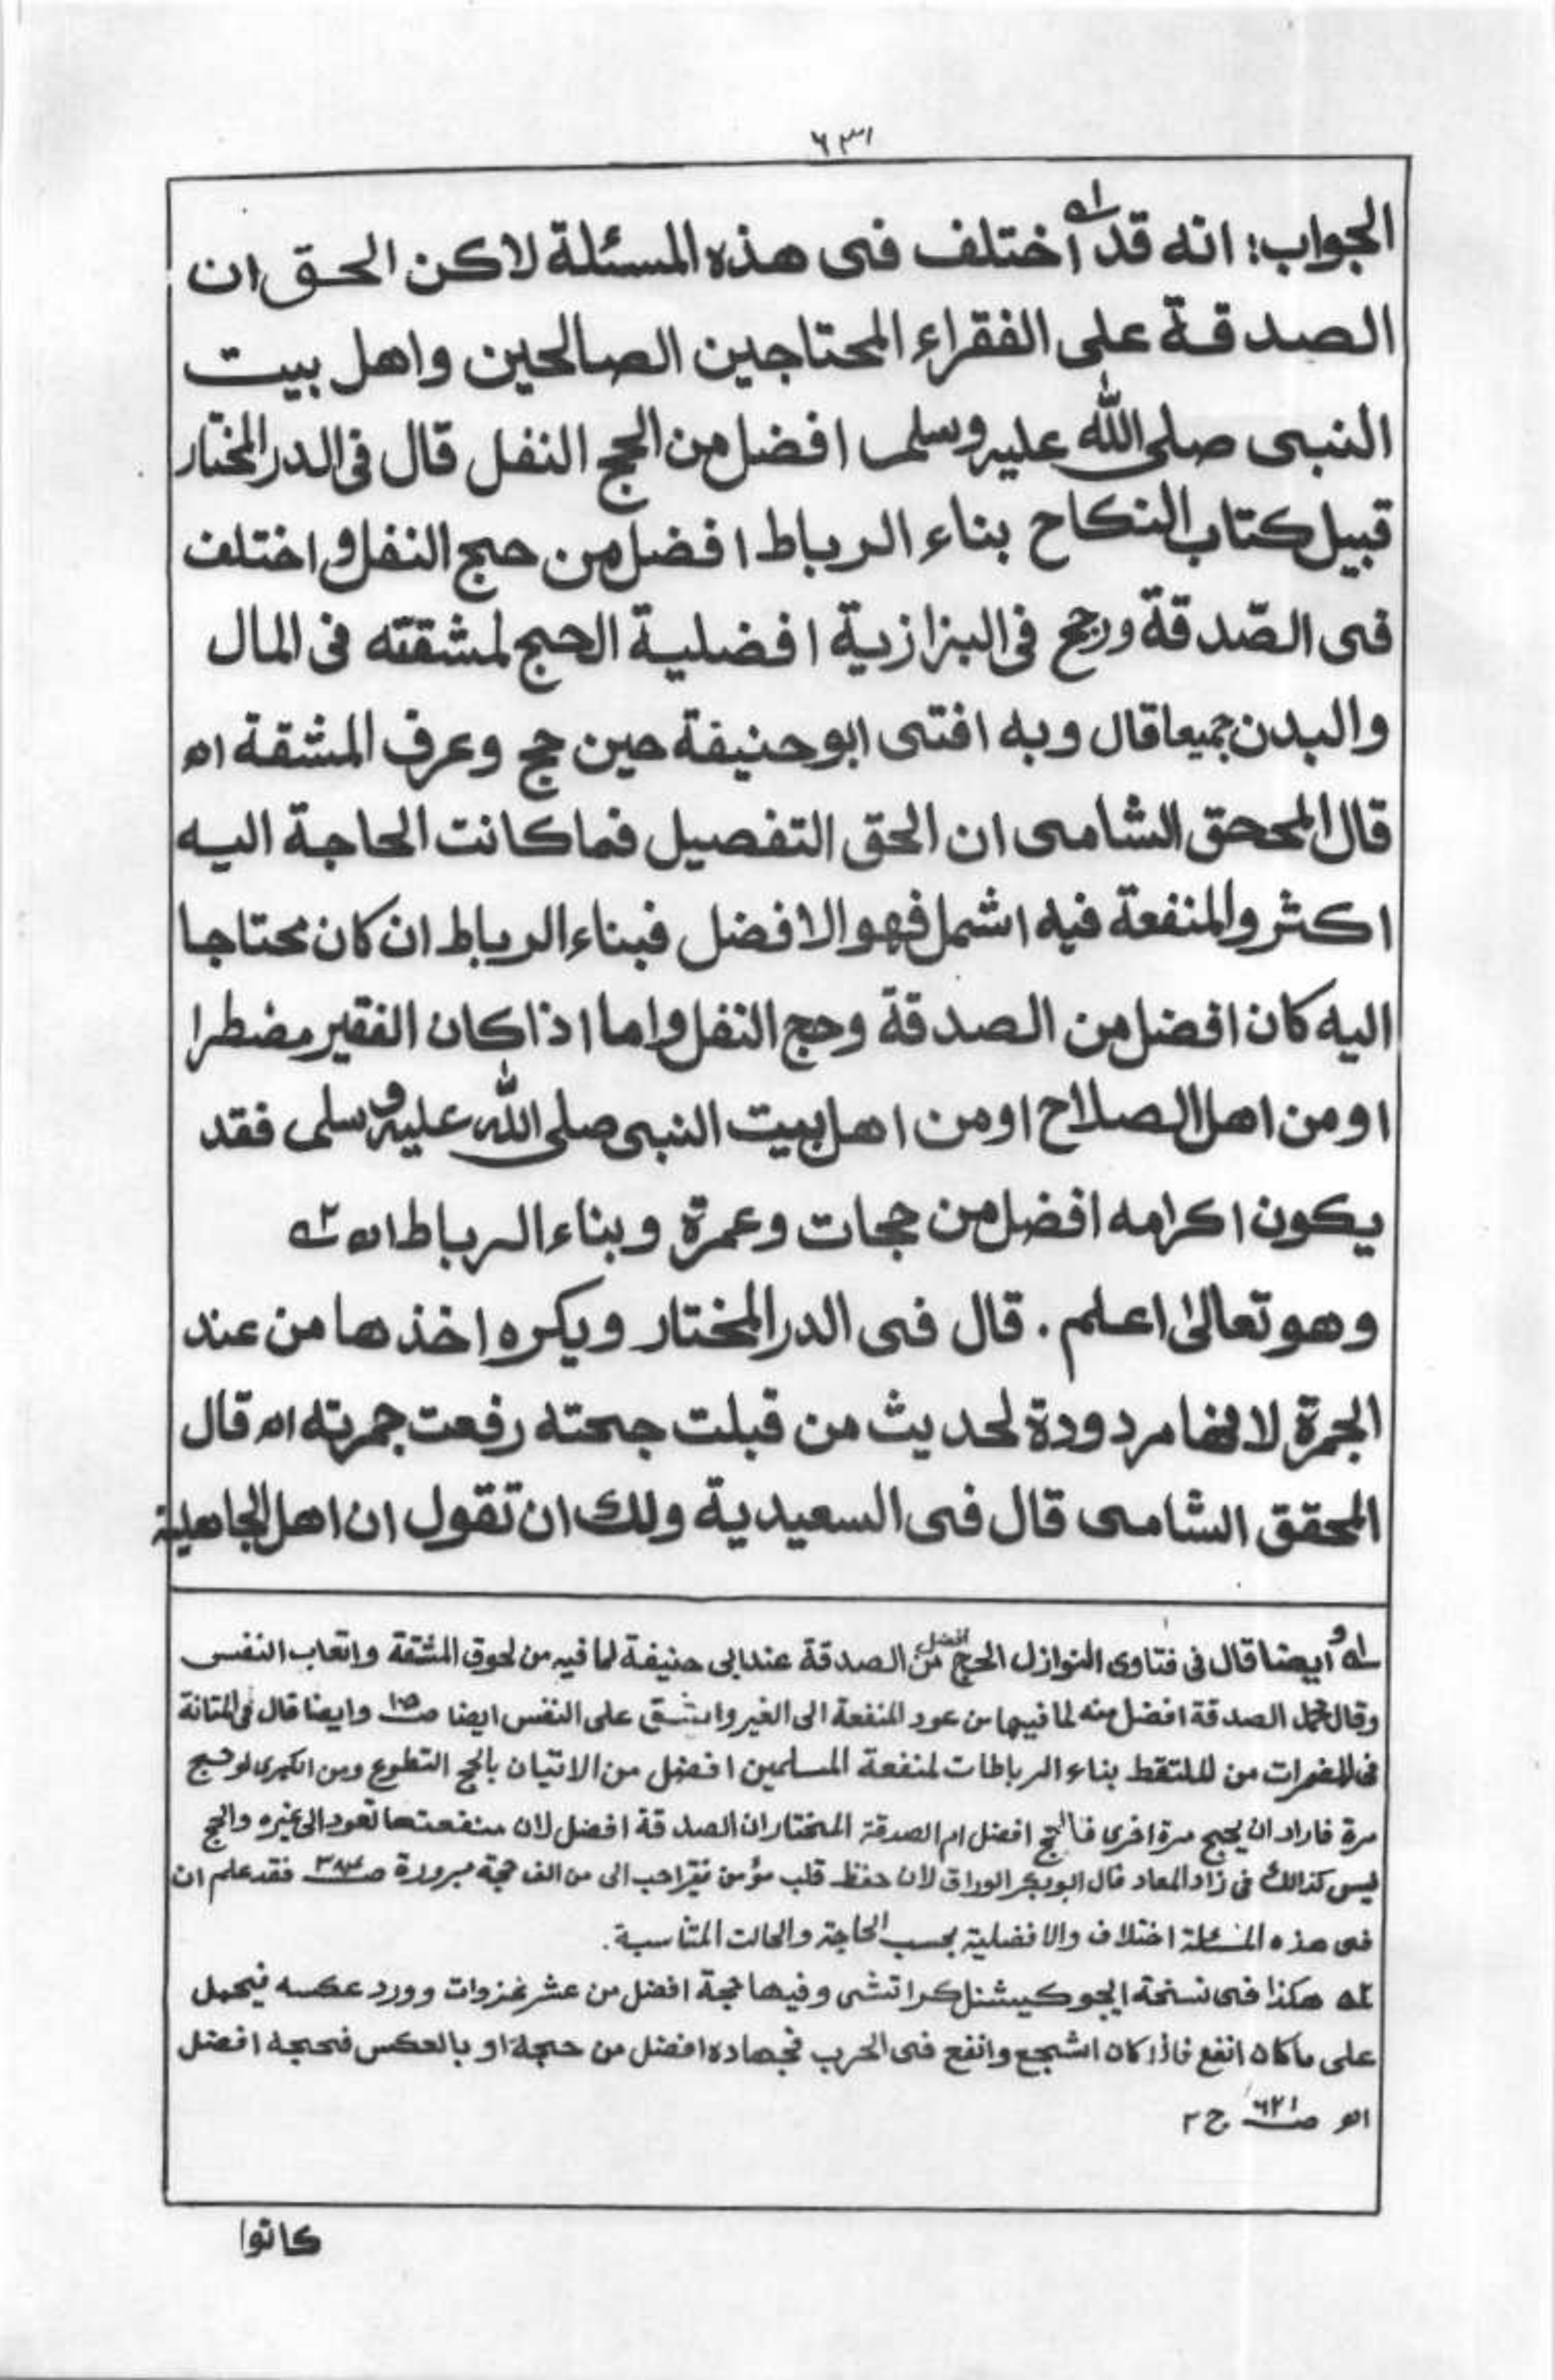 ٦٣١
الجواب: انه قد اختلف فى هذه المسئلة لاكن الحق ان
الصدقة على الفقراء المحتاجين الصالحين واهل بيت
النبى صلى الله عليه وسلم افضل من الحج النفل قال فى الدر المختار
قبيل كتاب النكاح بناء الرباط افضل من حج النفل واختلف
فى الصّدقة ورجح فى البزازية افضلية الحج لمشقته فى المال
والبدن جميعا قال وبه افتى ابو حنيفة حين حج وعرف المشقة اه
قال المححق الشامى ان الحق التفصيل فما كانت الحاجة اليه
اكثر والمنفعة فيه اشمل فهو الافضل فبناء الرباط ان كان محتاجا
اليه كان افضل من الصدقة وحج النفل واما اذا كان الفقير مضطرا
او من اهل الصلاح او من اهل بيت النبى صلى الله عليه وسلم فقد
يكون اكرامه افضل من حجات وعمرة وبناء الرباط اه ٢ه
وهو تعالىٰ اعلم. قال فى الدر المختار ويكره اخذها من عند
الجمرة لانها مردودة لحديث من قبلت جحته رفعت جمرته اه قال
المحقق الشامى قال فى السعيدية ولك ان تقول ان اهل الجاهلية
١ه وأيضا قال فى فتاوى النوازل الحج افضل من الصدقة عند ابى حنيفة لما فيه من لحوق المشقة واتعاب النفس
وقال محمد الصدقة افضل منه لما فيها من عود المنفعة الى الغير واشق على النفس ايضا ص وايضا قال فى المتانة
فى المضمرات من الملتقط بناء الرباطات لمنفعة المسلمين افضل من الاتيان بالحج التطوع ومن الكبرى لو حج
مرة فاراد ان يحج مرة اخرى فالحج افضل ام الصدقة المختار ان الصدقة افضل لان منفعتها تعود الى غيره والحج
ليس كذالك فى زاد المعاد قال ابوبكر الوراق لان حفظ قلب مؤمن فقير احب الى من الف حجة مبرورة ص فقد علم ان
فى هذه المسئلة اختلاف والافضلية بحسب الحاجة والحالت المتناسبة.
٢ه هكذا فى نسخة ايجوكيشنل كراتشى وفيها حجة افضل من عشر غزوات وورد عكسه فيحمل
على ما كان انفع فاذا كان اشجع وانفع فى الحرب فجهاده افضل من حجة او بالعكس فحجه افضل
اه ص ٦٢١ ج ٢
كانوا